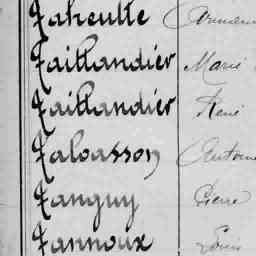 Taheutte
Taillandier Marie
Taillandier René
Talbasson Antoine
Tanguy Pierre
Tannoux Louis